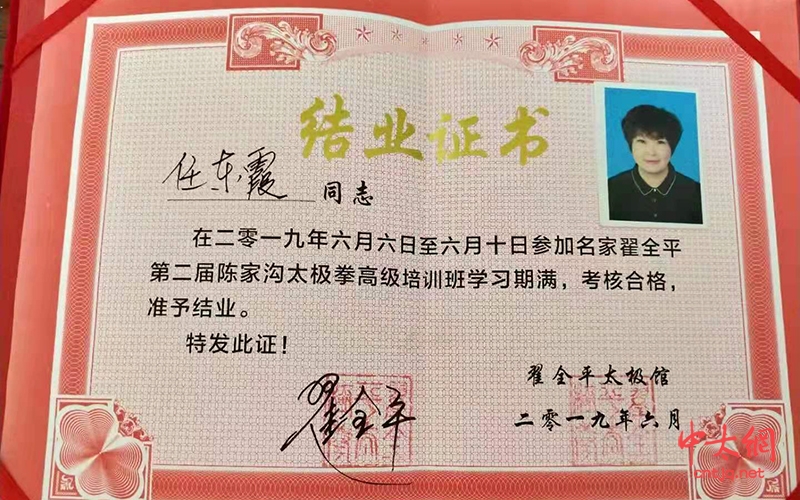 结业证书
任东霞 同志
在二零一九年六月六日至六月十日参加名家翟全平
第二届陈家沟太极拳高级培训班学习期满，考核合格，
准予结业。
特发此证！
翟全平
翟全平太极馆
二零一九年六月
中太網
cntjq.net